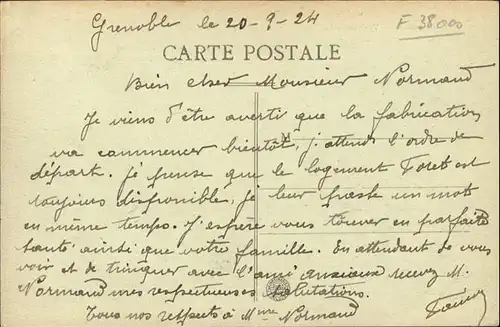 Grenoble le 20-9-24
F 38000
CARTE POSTALE
Bien cher Monsieur Normand
Je viens d'être averti que la fabrication
va commencer bientôt, j'attends l'ordre de
départ. je pense que le logement Foret est
toujours disponible, je leur poste un mot
en même temps. J'espère vous trouver en parfaite
santé ainsi que votre famille. En attendant de vous
voir et de trinquer avec l'ami recevez M.
Normand mes respectueuses salutations.
Tous nos respects à Mme Normand